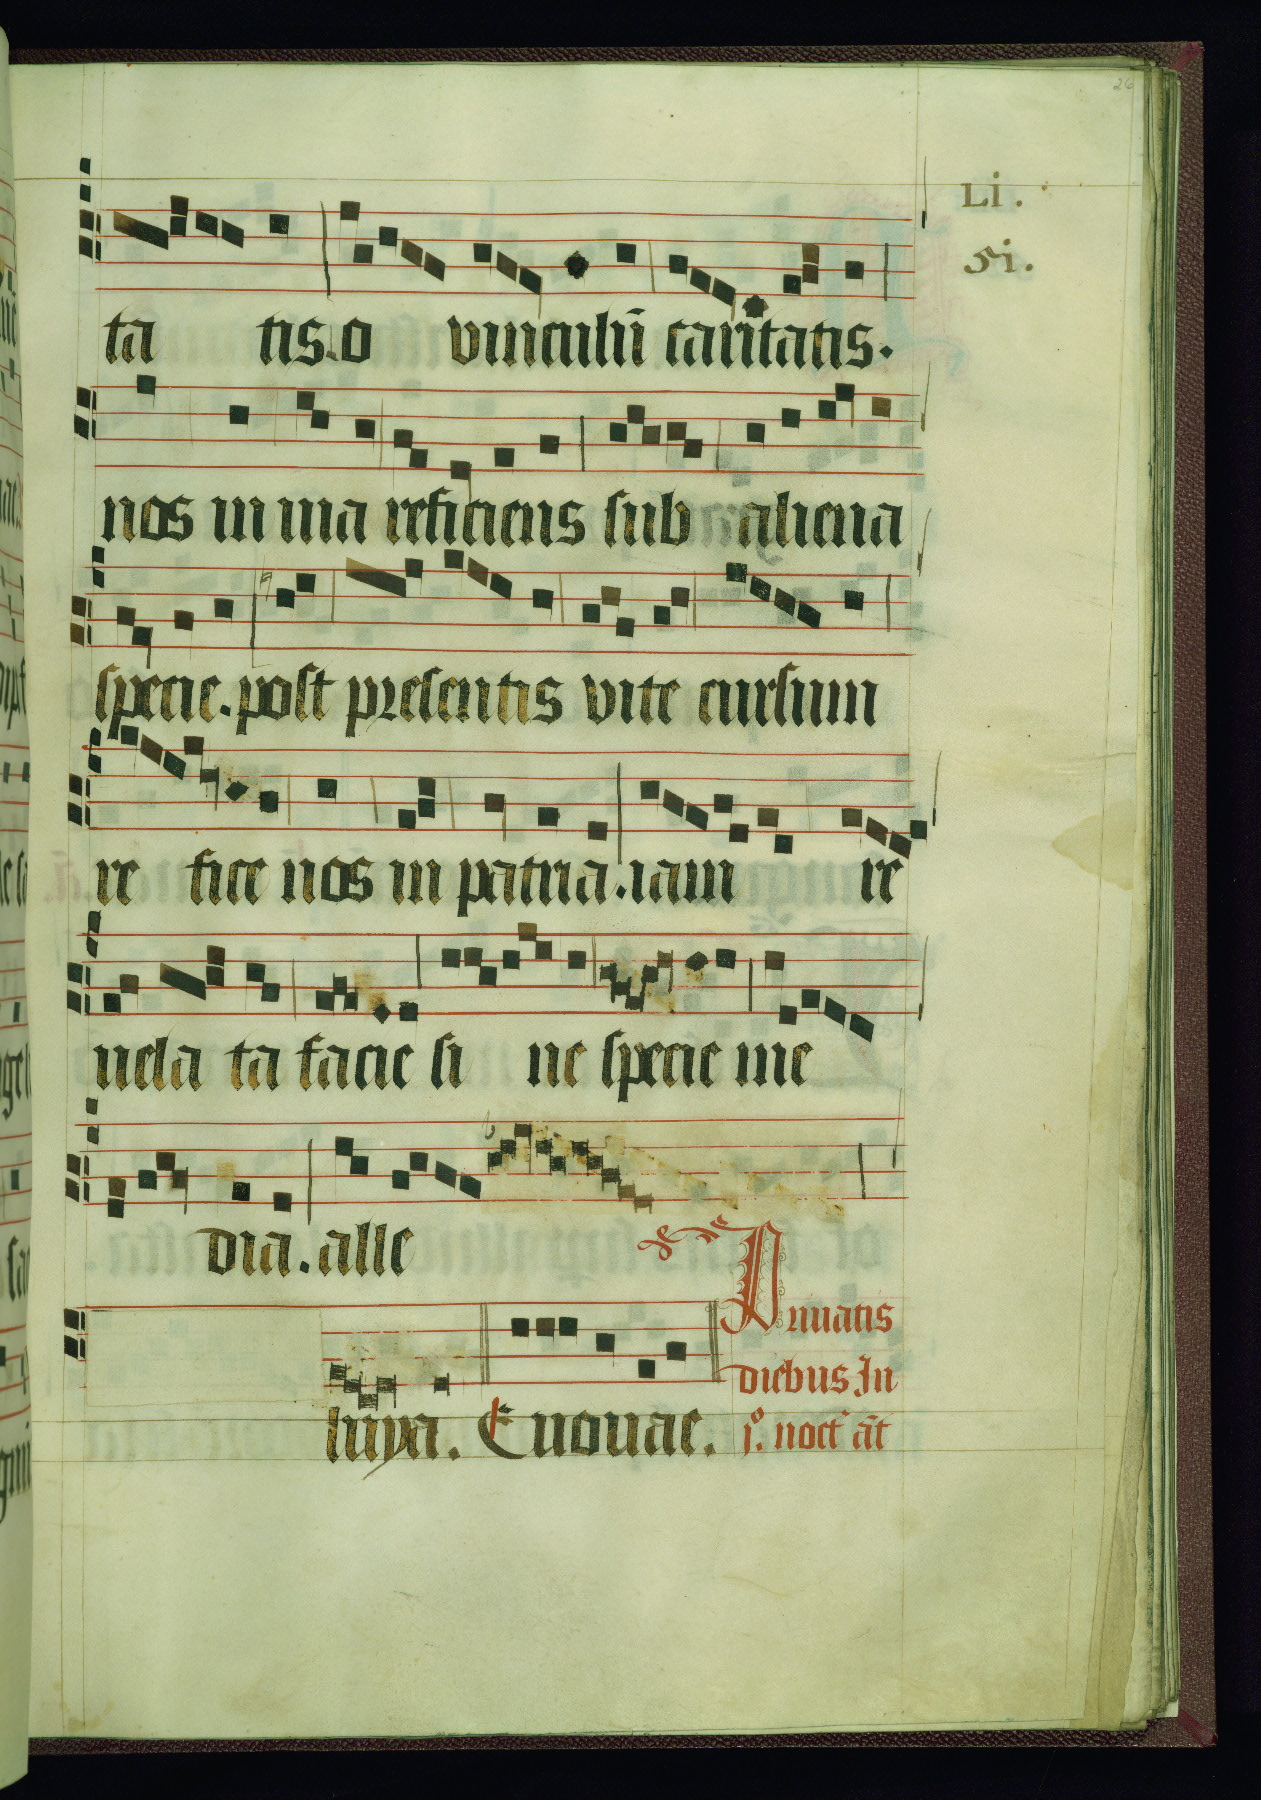 26
Li.
5i.
ta tis. o vinculū caritatis.
nos in ma reficiens sub aliena
specie. post presentis vite cursum
re fice nos in patria. iam re
uela ta facie si ne specie me
dia. alle
Priuatis
diebus In
luya. Euouae. j.º noct̄ āt